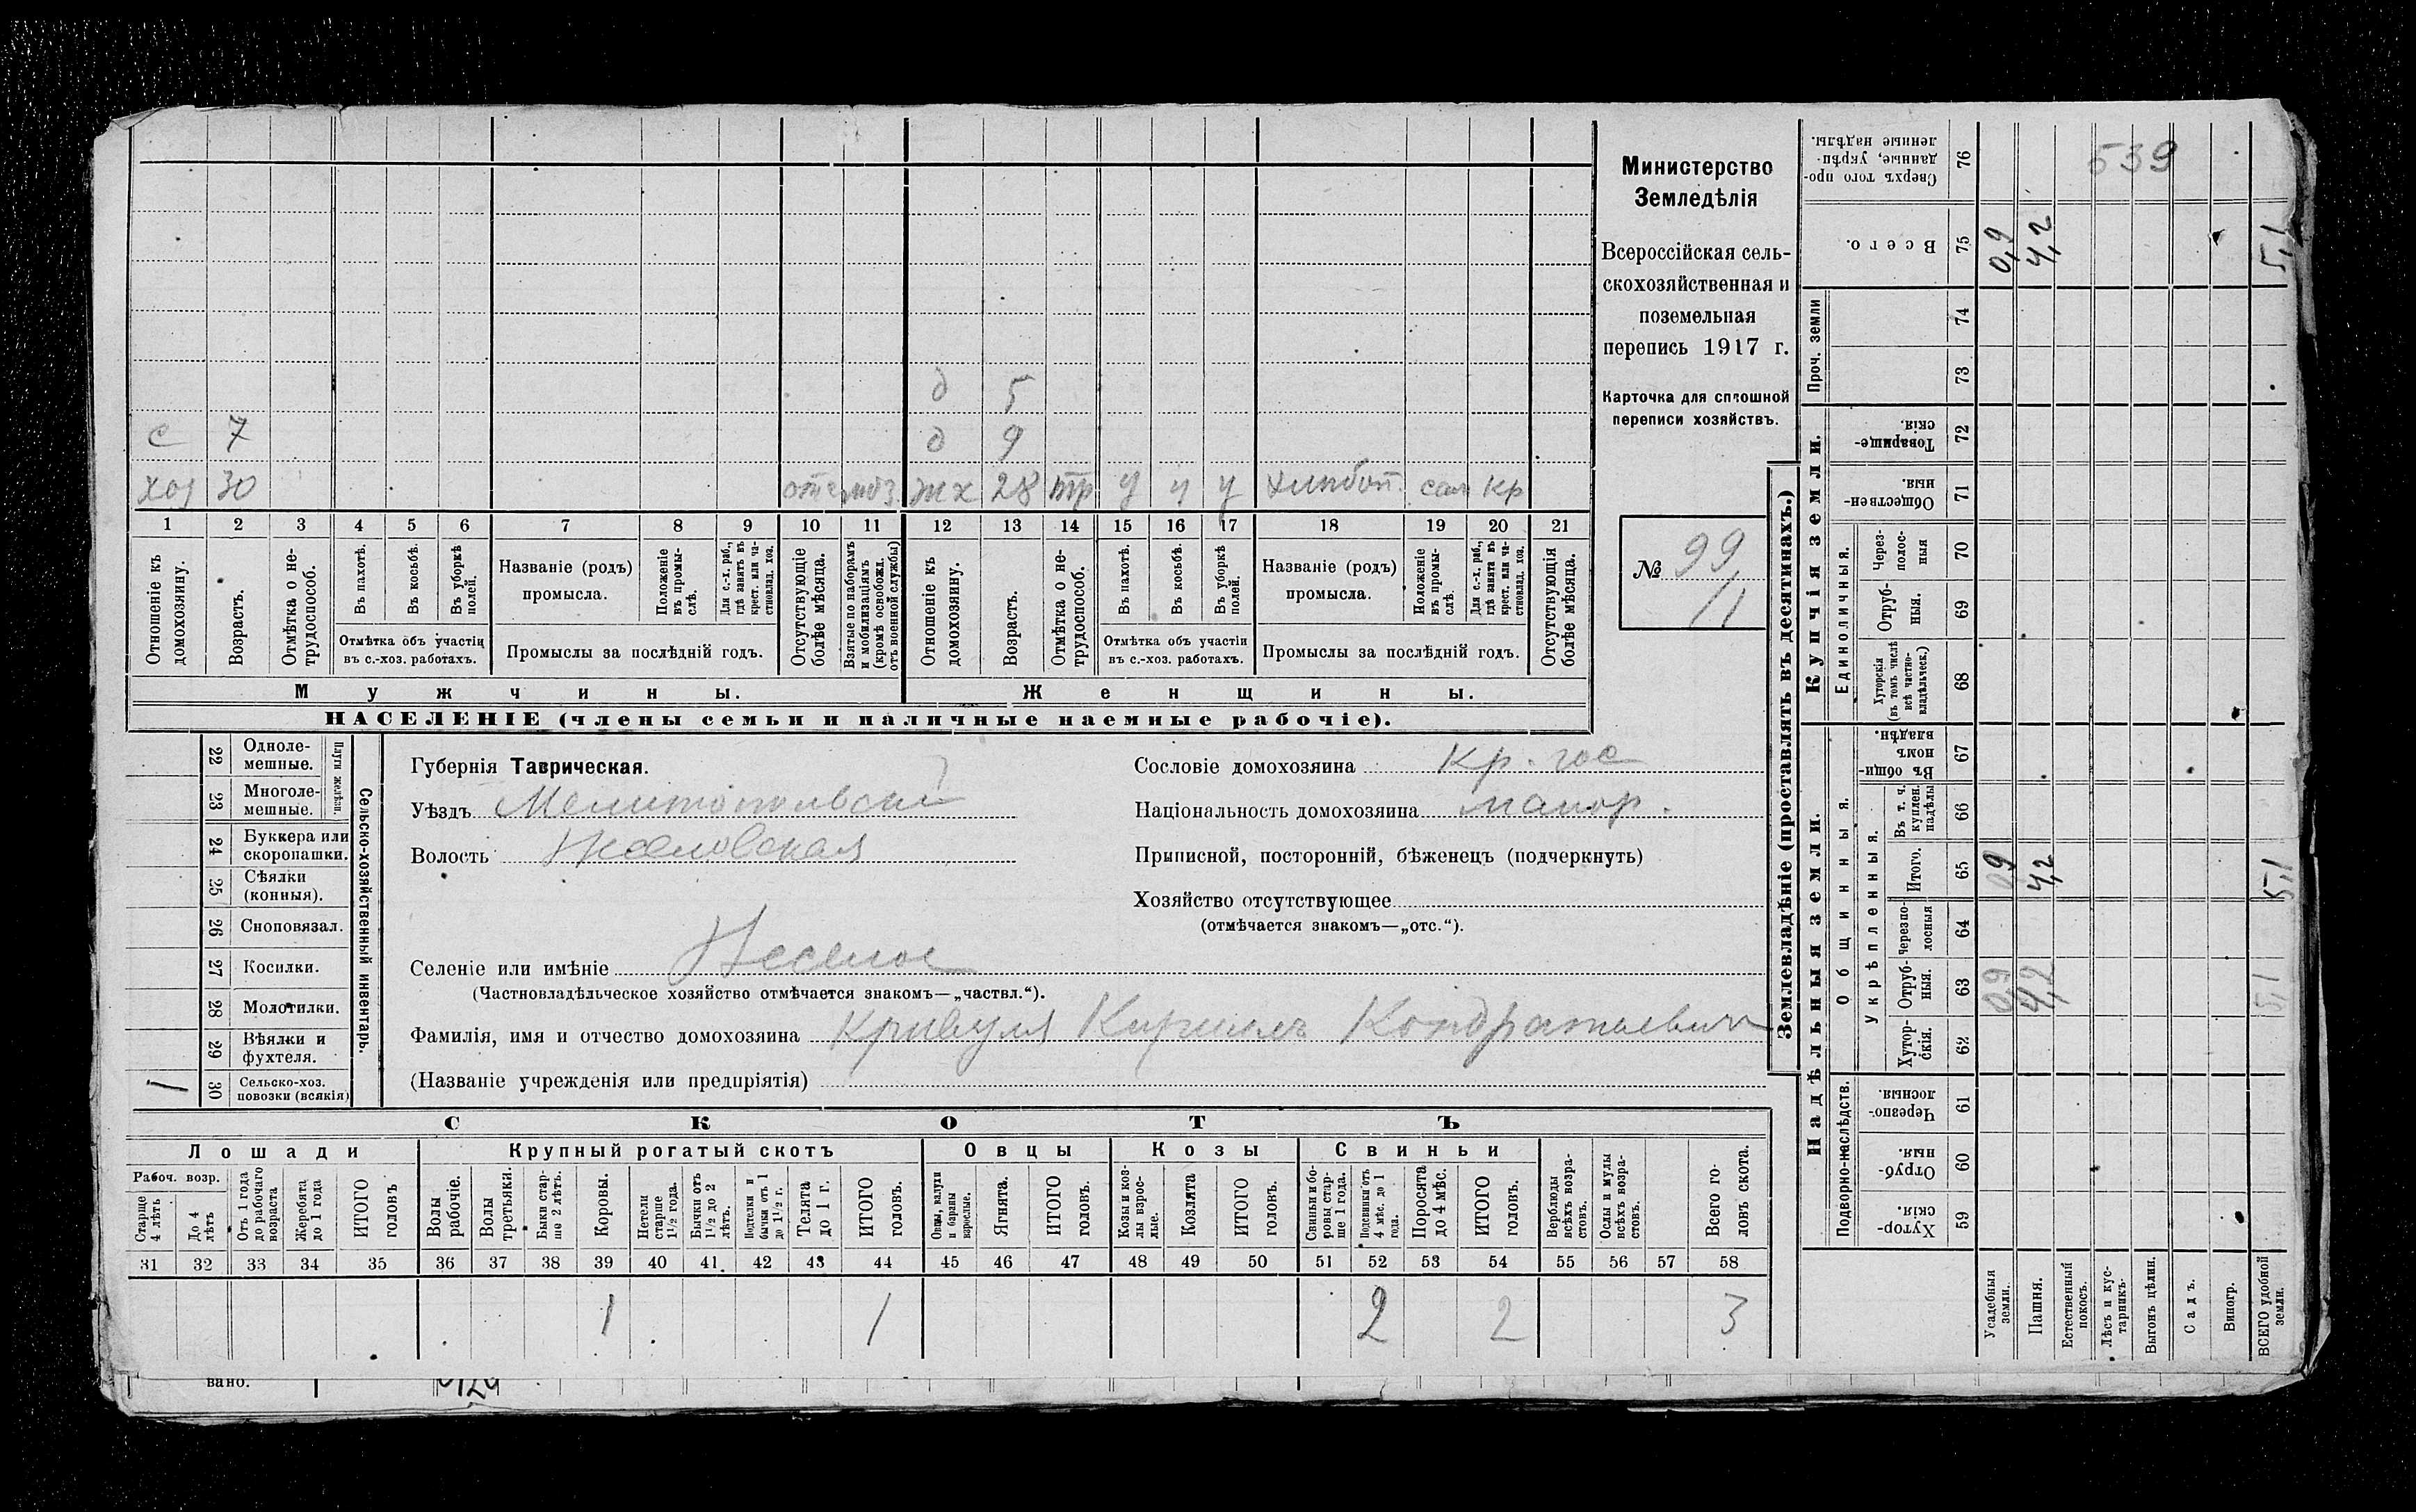 Министерство
Земледѣлія
Всероссійская сель-
скохозяйственная и
поземельная
перепись 1917 г.
Карточка для сплошной
переписи хозяйствъ.
№ 99
11
д 5
с 7 д 9
хоз 30 отс моб. жх 28 тр у у у хлѣбоп. сам кр
1 2 3 4 5 6 7 8 9 10 11 12 13 14 15 16 17 18 19 20 21
Отношеніе къ домохозяину.
Возрастъ.
Отмѣтка о не-трудоспособ.
Въ пахотѣ.
Въ косьбѣ.
Въ уборкѣ полей.
Отмѣтка объ участіи
въ с.-хоз. работахъ.
Названіе (родъ)
промысла.
Положеніе въ промы-слѣ.
Для с.-х. раб., гдѣ занятъ въ крест. или ча-стновлад. хоз.
Промыслы за послѣдній годъ.
Отсутствующіе болѣе мѣсяца.
Взятые по наборамъ и мобилизаціямъ (кромѣ освобожд. отъ военной службы)
Отношеніе къ домохозяину.
Возрастъ.
Отмѣтка о не-трудоспособ.
Въ пахотѣ.
Въ косьбѣ.
Въ уборкѣ полей.
Отмѣтка объ участіи
въ с.-хоз. работахъ.
Названіе (родъ)
промысла.
Положеніе въ промы-слѣ.
Для с.-х. раб., гдѣ занята въ крест. или ча-стновлад. хоз.
Промыслы за послѣдній годъ.
Отсутствующія болѣе мѣсяца.
Мужчины. Женщины.
НАСЕЛЕНІЕ (члены семьи и наличные наемные рабочіе).
22 Одноле-мешные.
23 Многоле-мешные.
Плуги желѣзн.
24 Буккера или скоропашки.
25 Сѣялки (конныя).
26 Сноповязал.
27 Косилки.
28 Молотилки.
29 Вѣялки и фухтеля.
1 30 Сельско-хоз. повозки (всякія)
Сельско-хозяйственный инвентарь.
Губернія Таврическая.
Уѣздъ Мелитопольскій
Волость Веселовская
Сословіе домохозяина кр. гос
Національность домохозяина малор.
Приписной, посторонній, бѣженецъ (подчеркнуть)
Хозяйство отсутствующее
(отмѣчается знакомъ—„отс.“).
Селеніе или имѣніе Веселое
(Частновладѣльческое хозяйство отмѣчается знакомъ—„частвл.“).
Фамилія, имя и отчество домохозяина Кривуля Кириллъ Кондратьевич
(Названіе учрежденія или предпріятія)
СКОТЪ
Лошади Крупный рогатый скотъ Овцы Козы Свиньи
Рабоч. возр.
Старше 4 лѣтъ
До 4 лѣтъ
Отъ 1 года до рабочаго возраста
Жеребята до 1 года
ИТОГО головъ
Волы рабочіе.
Волы третьяки.
Быки стар-ше 2 лѣтъ.
Коровы.
Нетели старше 1½ года.
Бычки отъ 1½ до 2 лѣтъ.
Подтелки и бычки отъ 1 до 1½ г.
Телята до 1 г.
ИТОГО головъ.
Овцы, валухи и бараны взрослые.
Ягнята.
ИТОГО головъ.
Козы и коз-лы взрос-лые.
Козлята
ИТОГО головъ.
Свиньи и бо-ровы стар-ше 1 года.
Подсвинки отъ 4 мѣс. до 1 года.
Поросята до 4 мѣс.
ИТОГО головъ.
Верблюды всѣхъ возра-стовъ.
Ослы и мулы всѣхъ возра-стовъ.
Всего го-ловъ скота.
31 32 33 34 35 36 37 38 39 40 41 42 43 44 45 46 47 48 49 50 51 52 53 54 55 56 57 58
1 1 2 2 3
вано.
Землевладѣніе (проставлять въ десятинахъ.)
Надѣльныя земли. Купчія земли. Проч. земли
Подворно-наслѣдств.
Общинныя.
Укрѣпленныя.
Единоличныя.
Хутор-скія. 59
Отруб-ныя. 60
Черезпо-лосныя. 61
Хутор-скія. 62
Отруб-ныя. 63 0,9 4,2 5,1
Черезпо-лосныя 64
Итого. 65 0,9 4,2 5,1
Въ т. ч. куплен. надѣлы 66
Въ общин-номъ владѣн. 67
Хуторскія (въ томъ числѣ всѣ частно-владѣльческ.) 68
Отруб-ныя. 69
Через-полос-ныя 70
Обществен-ныя. 71
Товарище-скія. 72
73
74
Всего. 75 0,9 4,2 5,1
Сверхъ того про-данные, укрѣп-ленные надѣлы. 76
539
Усадебныя земли.
Пашня.
Естественный покосъ.
Лѣсъ и кус-тарникъ.
Выгонъ цѣлин.
Садъ.
Виногр.
ВСЕГО удобной земли.